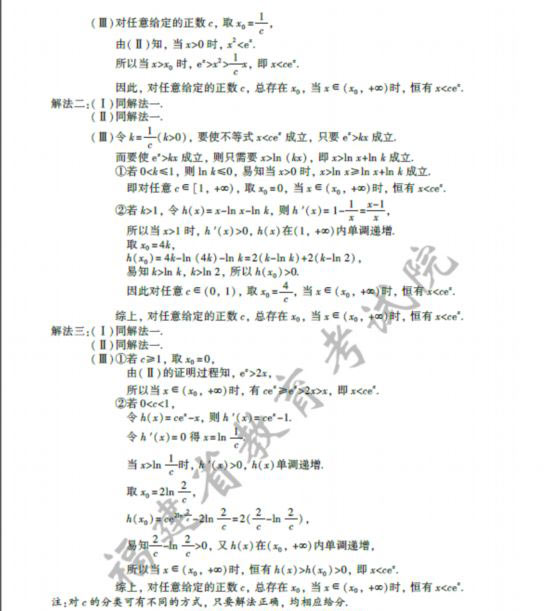 (Ⅲ)对任意给定的正数 c, 取 x₀=1/c,
由(Ⅱ)知, 当 x>0 时, x²<eˣ.
所以当 x>x₀ 时, eˣ>x²>1/c x, 即 x<ceˣ.
因此, 对任意给定的正数 c, 总存在 x₀, 当 x∈(x₀, +∞)时, 恒有 x<ceˣ.
解法二:(Ⅰ)同解法一.
(Ⅱ)同解法一.
(Ⅲ)令 k=1/c(k>0), 要使不等式 x<ceˣ 成立, 只要 eˣ>kx 成立.
而要使 eˣ>kx 成立, 则只需要 x>ln (kx), 即 x>ln x+ln k 成立.
①若 0<k≤1, 则 ln k≤0, 易知当 x>0 时, x>ln x≥ln x+ln k 成立.
即对任意 c∈[1, +∞), 取 x₀=0, 当 x∈(x₀, +∞)时, 恒有 x<ceˣ.
②若 k>1, 令 h(x)=x-ln x-ln k, 则 h′(x)=1-1/x=(x-1)/x,
所以当 x>1 时, h′(x)>0, h(x)在(1, +∞)内单调递增.
取 x₀=4k,
h(x₀)=4k-ln (4k)-ln k=2(k-ln k)+2(k-ln 2),
易知 k>ln k, k>ln 2, 所以 h(x₀)>0.
因此对任意 c∈(0, 1), 取 x₀=4/c, 当 x∈(x₀, +∞)时, 恒有 x<ceˣ.
综上, 对任意给定的正数 c, 总存在 x₀, 当 x∈(x₀, +∞)时, 恒有 x<ceˣ.
解法三:(Ⅰ)同解法一.
(Ⅱ)同解法一.
(Ⅲ)①若 c≥1, 取 x₀=0,
由(Ⅱ)的证明过程知, eˣ>2x,
所以当 x∈(x₀, +∞)时, 有 ceˣ≥eˣ>2x>x, 即 x<ceˣ.
②若 0<c<1,
令 h(x)=ceˣ-x, 则 h′(x)=ceˣ-1.
令 h′(x)=0 得 x=ln 1/c.
当 x>ln 1/c 时, h′(x)>0, h(x)单调递增.
取 x₀=2ln 2/c,
h(x₀)=ce^(2ln 2/c)-2ln 2/c=2(2/c-ln 2/c),
易知 2/c-ln 2/c>0, 又 h(x)在(x₀, +∞)内单调递增,
所以当 x∈(x₀, +∞)时, 恒有 h(x)>h(x₀)>0, 即 x<ceˣ.
综上, 对任意给定的正数 c, 总存在 x₀, 当 x∈(x₀, +∞)时, 恒有 x<ceˣ.
注:对 c 的分类可有不同的方式, 只要解法正确, 均相应给分.
福建省教育考试院